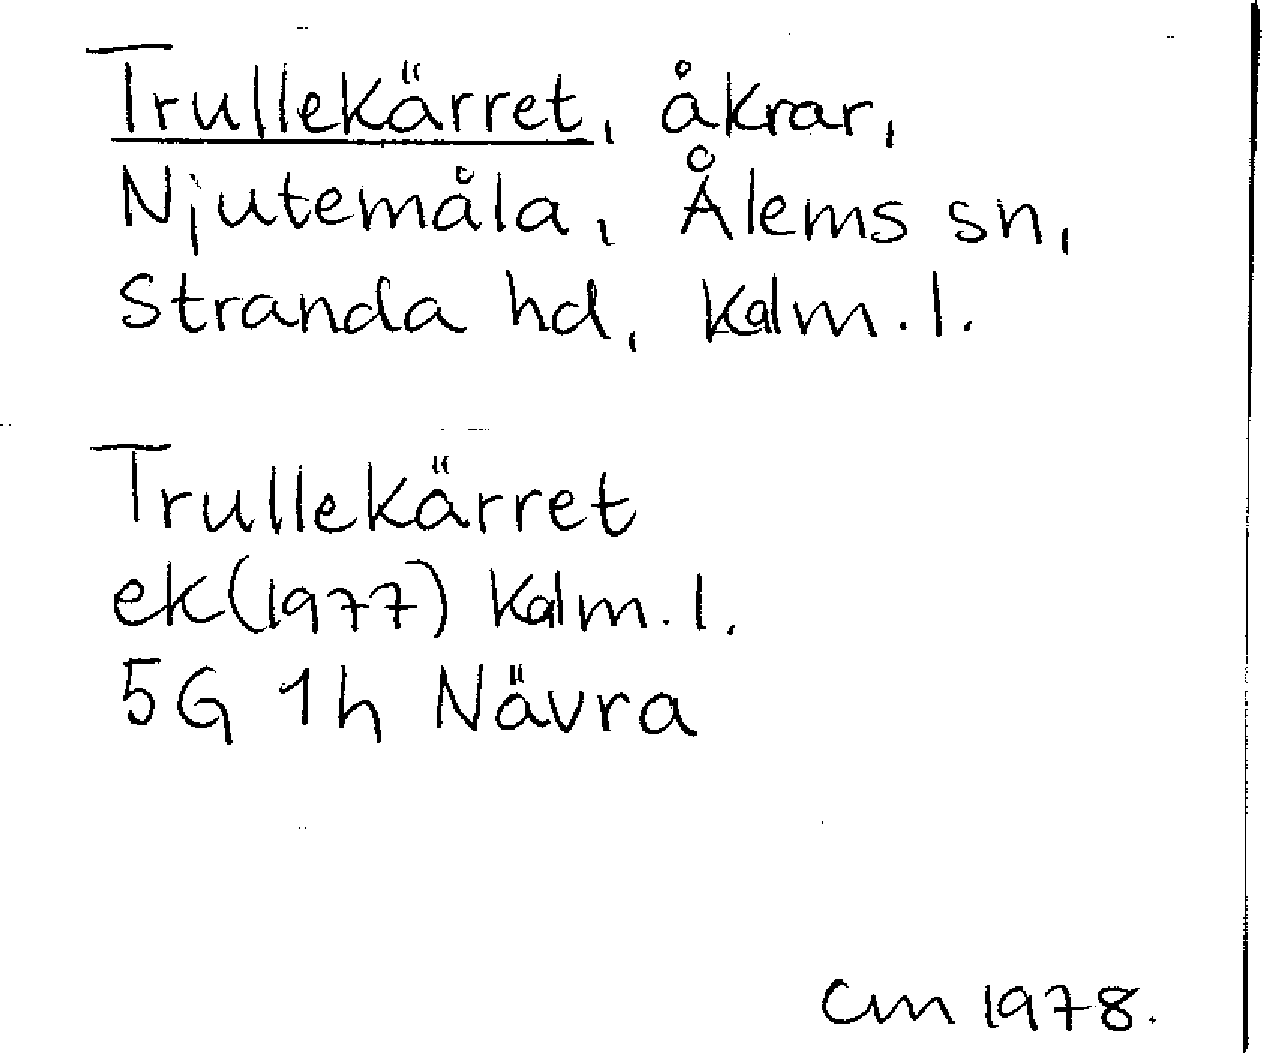 Trullekärret, åkrar,
Njutemåla, Ålems sn,
Stranda hd, Kalm. l.
Trullekärret
ek (1977) Kalm. l.
5G 1h Nävra
CM 1978.